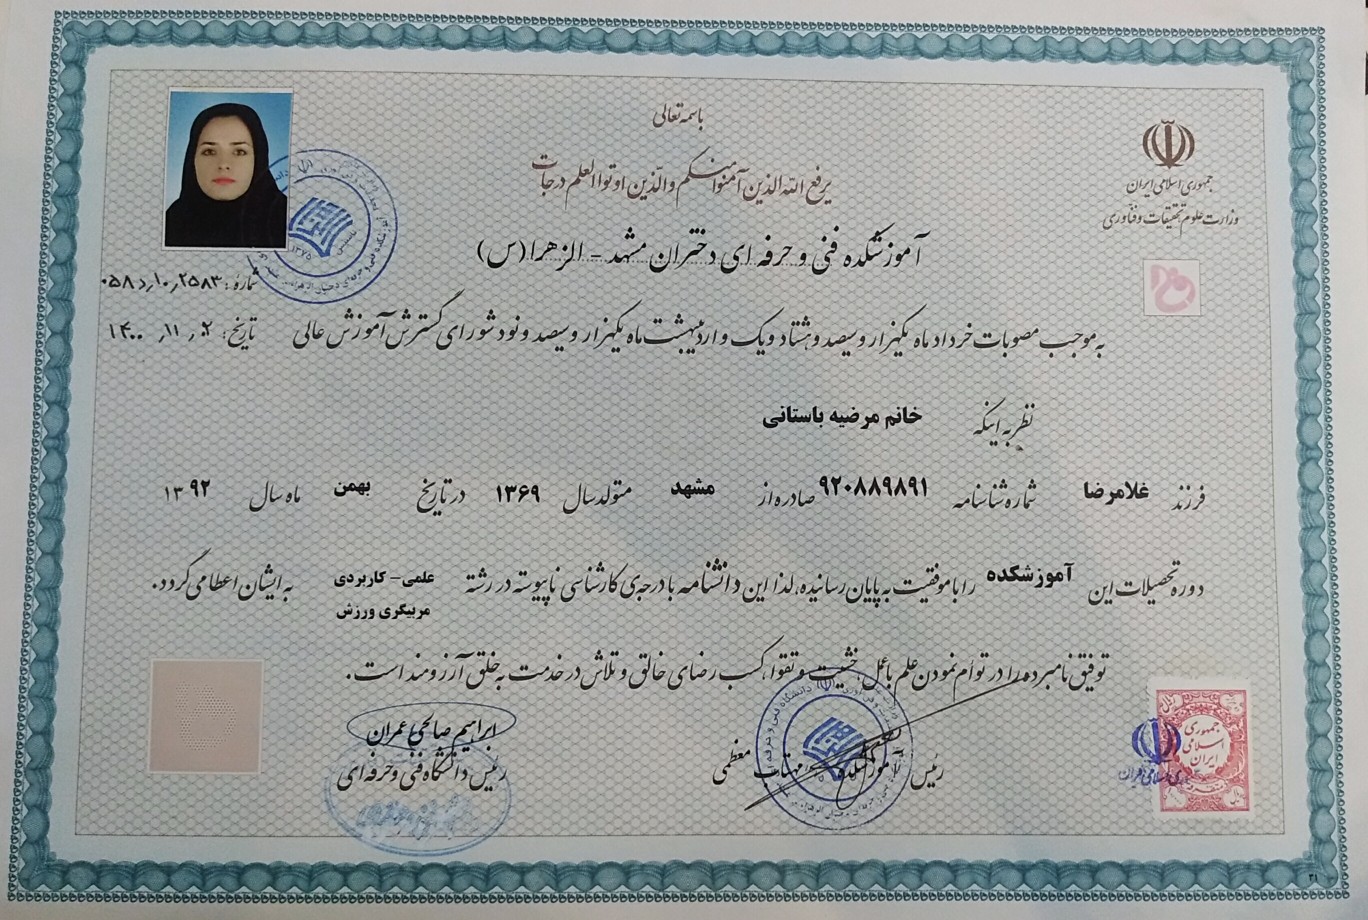 باسمه تعالی
یرفع الله الذین آمنوا منکم و الذین اوتوا العلم درجات
جمهوری اسلامی ایران
وزارت علوم، تحقیقات و فنّاوری
آموزشکده فنی و حرفه ای دختران مشهد - الزهرا (س)
شماره: ۰۵۸د/۱۰/۲۵۸۳
تاریخ: ۱۴۰۰/۱۱/۰۲
به موجب مصوبات خرداد ماه یکهزار و سیصد و هشتاد و یک و اردیبهشت ماه یکهزار و سیصد و نود شورای گسترش آموزش عالی
نظر به اینکه خانم مرضیه باستانی
فرزند غلامرضا شماره شناسنامه ۹۲۰۸۸۹۸۹۱ صادره از مشهد متولد سال ۱۳۶۹ در تاریخ بهمن ماه سال ۱۳۹۲
دوره تحصیلات این آموزشکده را با موفقیت به پایان رسانیده، لذا این دانشنامه با درجه‌ی کارشناسی ناپیوسته در رشته علمی - کاربردی مربیگری ورزش به ایشان اعطا می گردد.
توفیق نامبرده را در توأم نمودن علم با عمل، خشیت و تقوا، کسب رضای خالق و تلاش در خدمت به خلق آرزومند است.
رئیس آموزشکده مهتاب معظمی
ابراهیم صالحی عمران
رئیس دانشگاه فنی و حرفه ای
جمهوری
اسلامی
ایران
۳۱